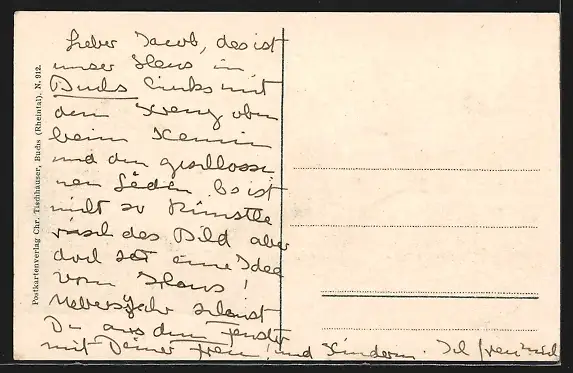 Lieber Jacob, das ist
unser Haus in
Buchs links mit
dem Kreuz oben
beim Kamin
und den geschlosse
nen Läden. Es ist
nicht so künstle
risch das Bild aber
doch hat eine Idee
vom Haus!
Uebersjahr schaust
Du aus dem Fenster
mit Deiner Frau! und Kindern. Ich freu mich
Postkartenverlag Chr. Tischhauser, Buchs (Rheintal). N. 912.